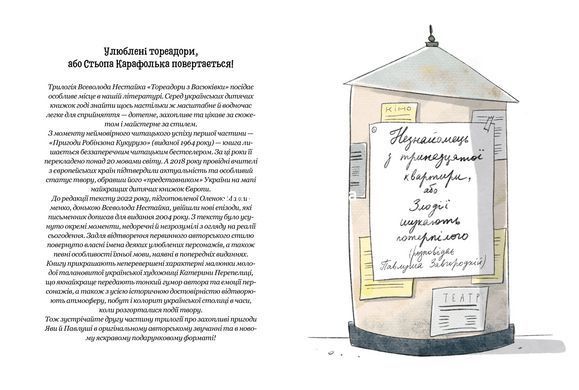 Улюблені тореадори,
або Стьопа Карафолька повертається!
Трилогія Всеволода Нестайка «Тореадори з Васюківки» посідає
особливе місце в нашій літературі. Серед українських дитячих
книжок годі знайти щось настільки ж масштабне й водночас
легке для сприйняття — дотепне, захопливе та цікаве за сюже-
том і майстерне за стилем.
З моменту неймовірного читацького успіху першої частини —
«Пригоди Робінзона Кукурузо» (виданої 1964 року) — книга ли-
шається беззаперечним читацьким бестселером. За ці роки її
перекладено понад 20 мовами світу. А 2018 року провідні вчителі
з європейських країн підтвердили актуальність та особливий
статус твору, обравши його «представником» України на мапі
найкращих дитячих книжок Європи.
До редакції тексту 2022 року, підготовленої Оленою
менко, донькою Всеволода Нестайка, увійшли нові епізоди, які
письменник дописав для видання 2004 року. З тексту було усу-
нуто окремі моменти, недоречні й незрозумілі з огляду на реалії
сьогодення. Задля відтворення первинного авторського стилю
повернуто власні імена деяких улюблених персонажів, а також
певні особливості їхньої мови, наявні в попередніх виданнях.
Книгу прикрашають неперевершені характерні малюнки моло-
дої талановитої української художниці Катерини Перепелиці,
що якнайкраще передають тонкий гумор автора та емоції пер-
сонажів, а також з усією історичною достовірністю відтворю-
ють атмосферу, побут і колорит української столиці в часи,
коли розгорталися події твору.
Тож зустрічайте другу частину трилогії про захопливі пригоди
Яви й Павлуші в оригінальному авторському звучанні та в ново-
му яскравому подарунковому форматі!
КІНО
Незнайомець
з тринадцятої
квартири,
або
Злодії
шукають
потерпілого
(розповідає
Павлуша Завгородній)
ТЕАТР